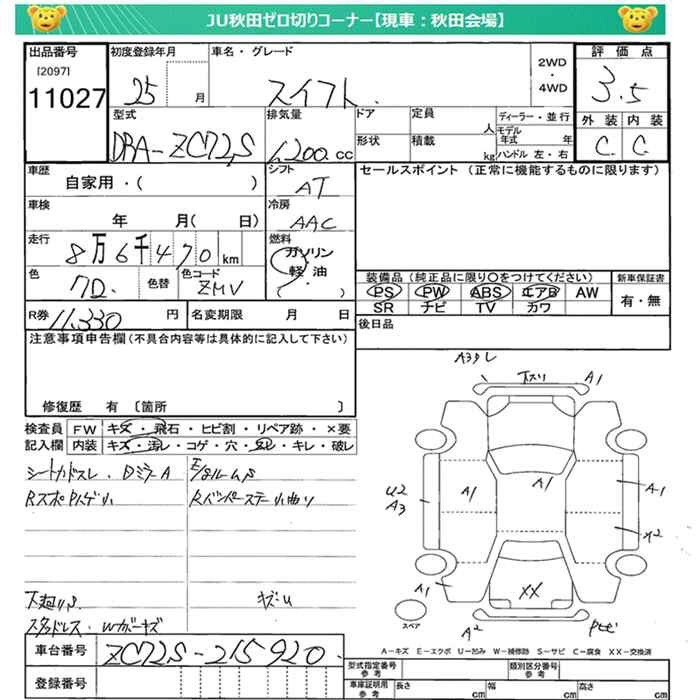 JU秋田ゼロ切りコーナー【現車：秋田会場】
出品番号
[2097]
11027
初度登録年月
25 月
車名・グレード
スイフト
2WD
・
4WD
評価点
3.5
外装 内装
C C
型式
DBA-ZC72S
排気量
1,200 cc
ドア
形状
定員 人
積載 kg
ディーラー・並行
モデル年式 年
ハンドル 左・右
車歴
自家用・( )
シフト
AT
セールスポイント (正常に機能するものに限ります)
車検
年 月( 日)
冷房
AAC
走行
8万6千470km
燃料
ガソリン
軽・油
( ・ )
色
色替
色コード
ZMV
装備品 (純正品に限り○をつけてください)
PS PW ABS エアB AW
SR ナビ TV カワ
新車保証書
有・無
R券 11,330 円
名変期限 月 日
後日品
注意事項申告欄(不具合内容等は具体的に記入して下さい)
修復歴 有 〔箇所 〕
検査員記入欄
FW キズ・飛石・ヒビ割・リペア跡・×要
内装 キズ・汚レ・コゲ・穴・ズレ・キレ・破レ
シートカドスレ・DミラーA
キズU
スタッドレス・Wカバーキズ
A1
A1
A1
A1
U2
A3
X2
A1
XX
A2
スペア
A-キズ E-エクボ U-凹み W-補修跡 S-サビ C-腐食 XX-交換済
車台番号
ZC72S-215920
登録番号
型式指定番号
参考
類別区分番号
参考
車庫証明用
参考
長さ cm
幅 cm
高さ cm